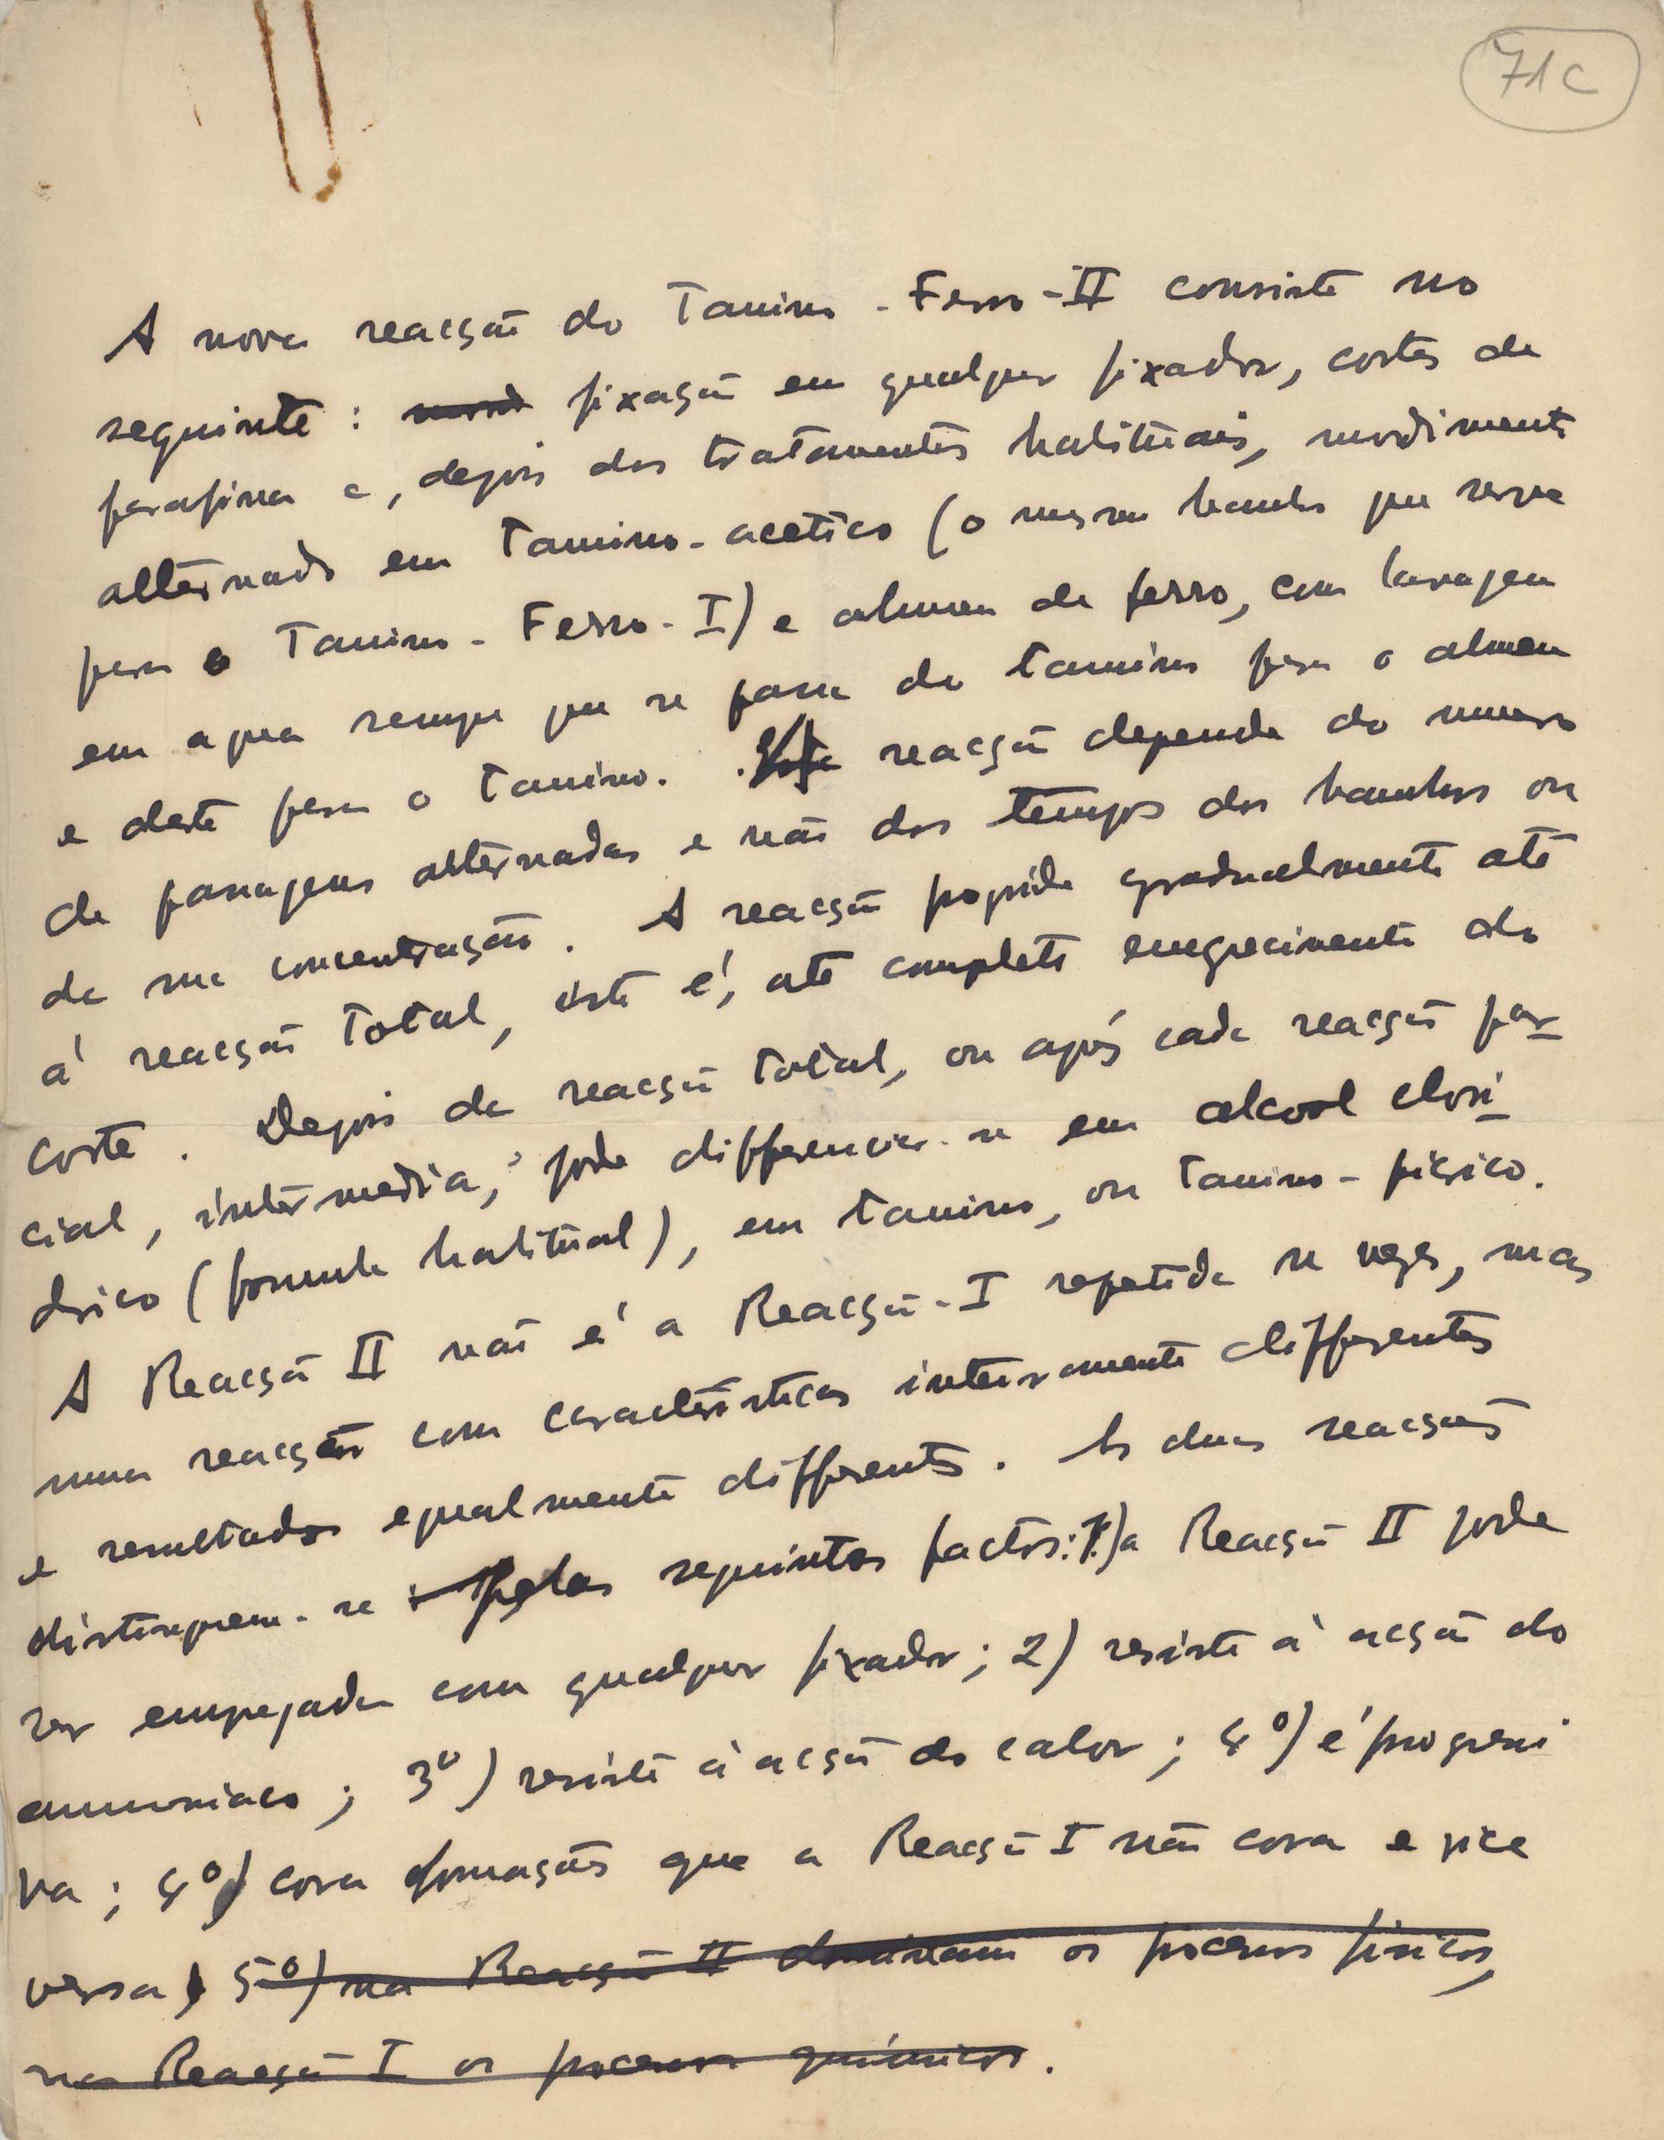 71c
A nova reacção do Tanino-Ferro-II consiste no
seguinte: fixação em qualquer fixador, cortes de
parafina e, depois dos tratamentos habituais, mordimento
alternado em tanino-acetico (o mesmo banho que serve
para o Tanino-Ferro-I) e alumen de ferro, com lavagem
em agua sempre que se passa do tanino para o alumen
e deste para o tanino. reacção depende do numero
de passagens alternadas e não dos tempos dos banhos ou
da sua concentração. A reacção progride gradualmente até
á reacção total, isto é, até completo enegrecimento do
corte. Depois da reacção total, ou após cada reacção par-
cial, intermedia, pode differenciar-se em alcool clori-
drico (formula habitual), em tanino, ou tanino-picrico.
A Reacção II não é a Reacção-I repetida n vezes, mas
uma reacção com caracteristicas inteiramente differentes
e resultados egualmente differentes. As duas reacções
distinguem-se pelos seguintes factos: 1º) a Reacção II pode
ser empregada com qualquer fixador; 2) resiste à acção do
ammoniaco; 3º) resiste à acção do calor; 4º) é progressi
va; 4º) cora formações que a Reacção I não cora e vice
versa; 5º) na Reacção II dominam os processos fisicos,
na Reacção I os processos quimicos.